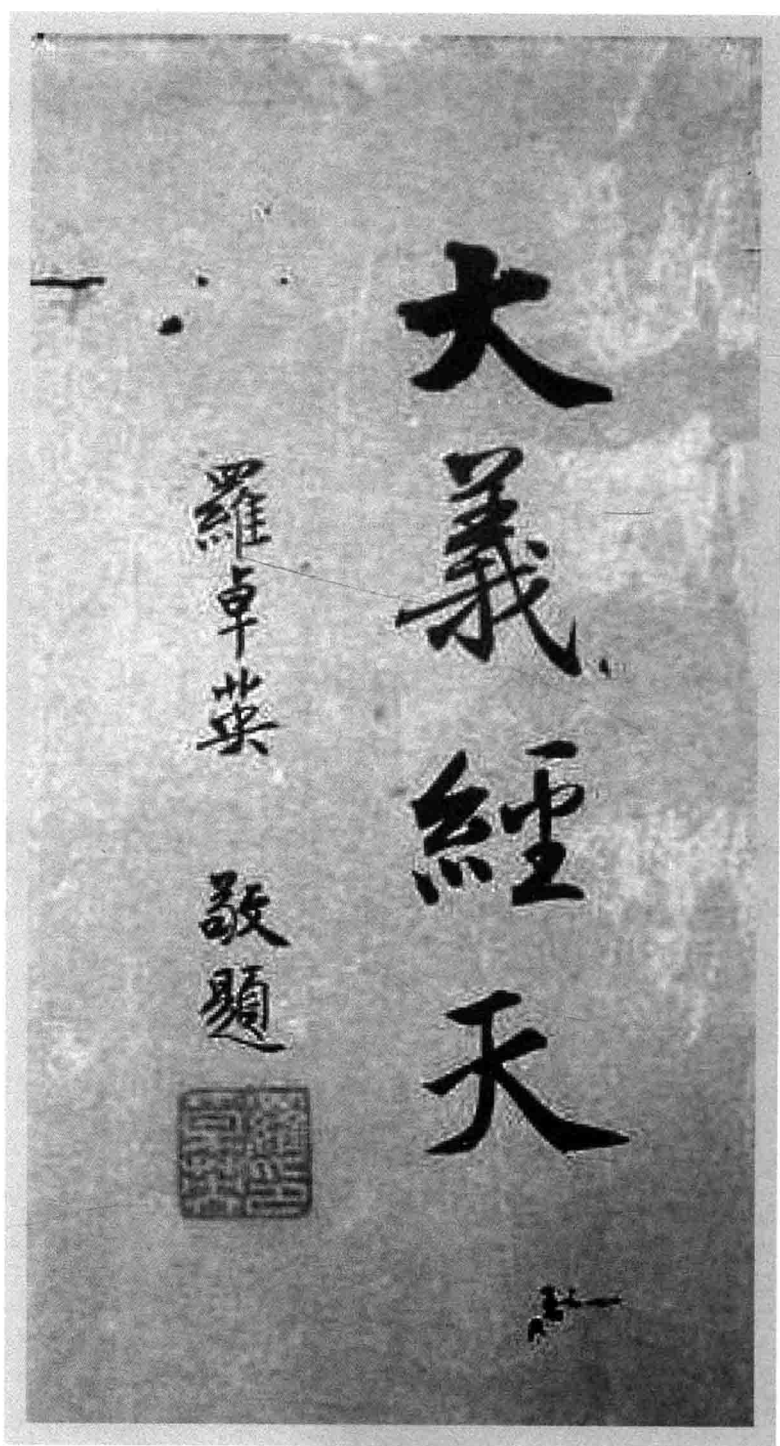 大義經天
羅卓英 敬題